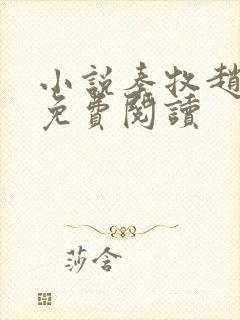 小說秦牧趙
免費閱讀
莎含